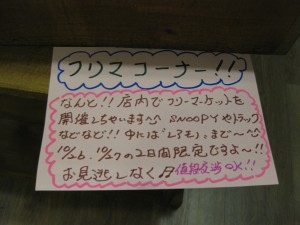 フリマコーナー!!
なんと!! 店内でフリーマーケットを
開催しちゃいます〜 SNOOPYやトラック
などなど!! 中には「しろもの」まで〜
10/26、10/27の2日間限定ですよ〜!!
お見逃しなく♬ 値段交渉OK!!